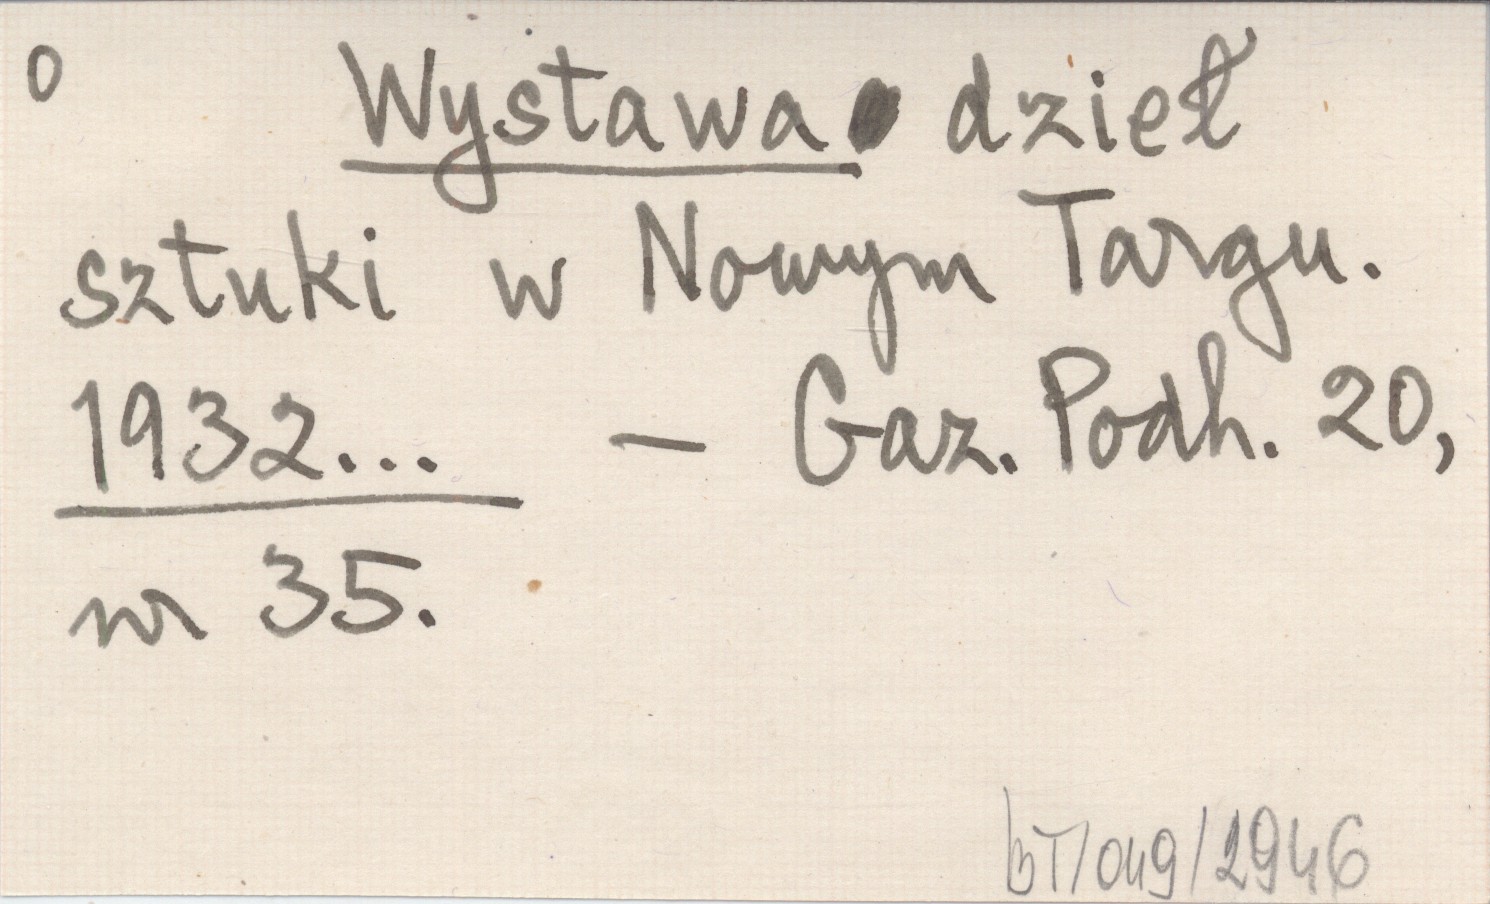 o Wystawa dzieł
sztuki w Nowym Targu.
1932... — Gaz. Podh. 20,
nr 35.
BT/049/2946